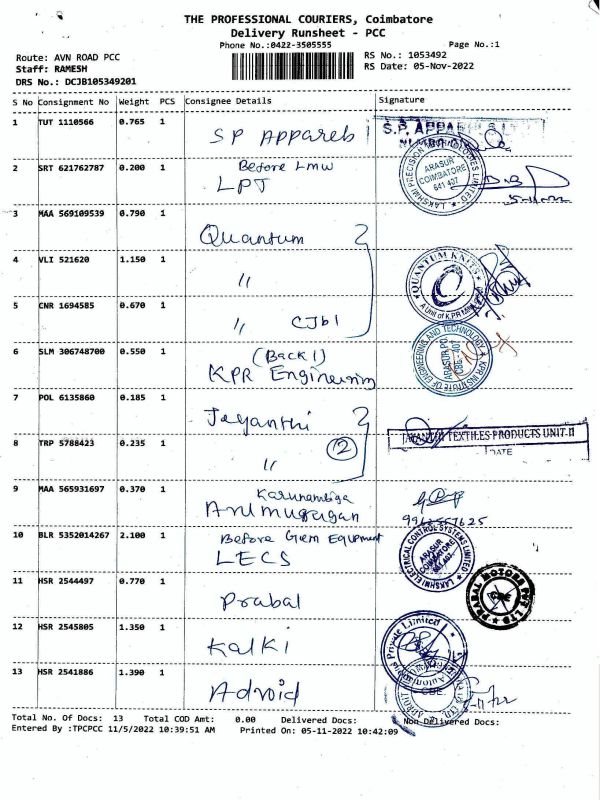 THE PROFESSIONAL COURIERS, Coimbatore
Delivery Runsheet - PCC
Phone No.:0422-3505555
Page No.:1
Route: AVN ROAD PCC
RS No.: 1053492
Staff: RAMESH
RS Date: 05-Nov-2022
DRS No.: DCJB105349201
S No Consignment No Weight PCS Consignee Details Signature
1 TUT 1110566 0.765 1 SP Apparels S.P. APPARELS
2 SRT 621762787 0.200 1 Before LMW
LPT
LAKSHMI PRECISION TECHNOLOGIES LIMITED
ARASUR
COIMBATORE
641 407
5-11-22
3 MAA 569109539 0.790 1 Quantum
4 VLI 521620 1.150 1 "
QUANTUM KNITS
A Unit of KPR
5 CNR 1694585 0.670 1 " CJb1
6 SLM 306748700 0.550 1 (Back1)
KPR Engineering
KPR INSTITUTE OF ENGINEERING AND TECHNOLOGY
ARASUR PO.
CBE - 407
7 POL 6135860 0.185 1 Jayanthi
JAYANTHI TEXTILES PRODUCTS UNIT-II
DATE
8 TRP 5788423 0.235 1 " 2
9 MAA 565931697 0.370 1 Karunambiga
Arumurugan
10 BLR 5352014267 2.100 1 Before Gem Equipment
LECS
LAKSHMI ELECTRICAL CONTROL SYSTEMS LIMITED
ARASUR
COIMBATORE
641 407
11 HSR 2544497 0.770 1 Prabal
PRABAL MOTORS PVT LTD
12 HSR 2545805 1.350 1 Kalki
Private Limited
13 HSR 2541886 1.390 1 Adroid
CBE.
Total No. Of Docs: 13 Total COD Amt: 0.00 Delivered Docs: Non Delivered Docs:
Entered By :TPCPCC 11/5/2022 10:39:51 AM Printed On: 05-11-2022 10:42:09